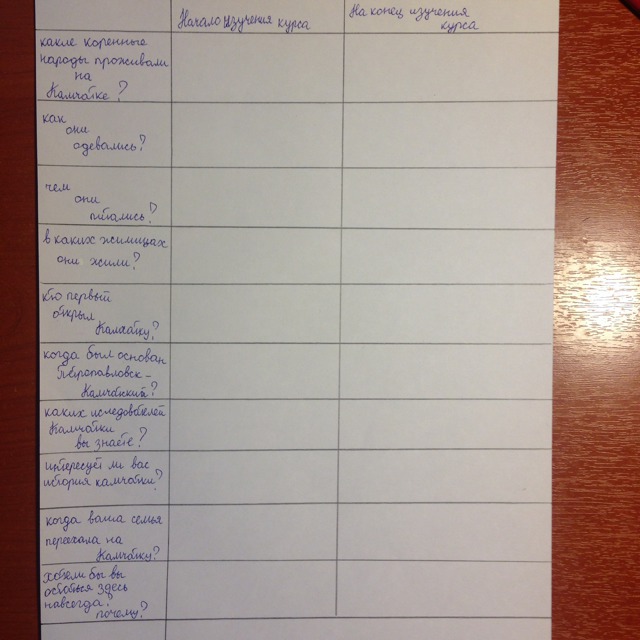 Начало изучения курса
На конец изучения
курса
какие коренные
народы проживали
на
Камчатке?
как
они
одевались?
чем
они
питались?
в каких жилищах
они жили?
кто первый
открыл
Камчатку?
когда был основан
Петропавловск-
Камчатский?
каких исследователей
Камчатки
вы знаете?
интересует ли вас
история камчатки?
когда ваша семья
переехала на
Камчатку?
хотели бы вы
остаться здесь
навсегда?
почему?